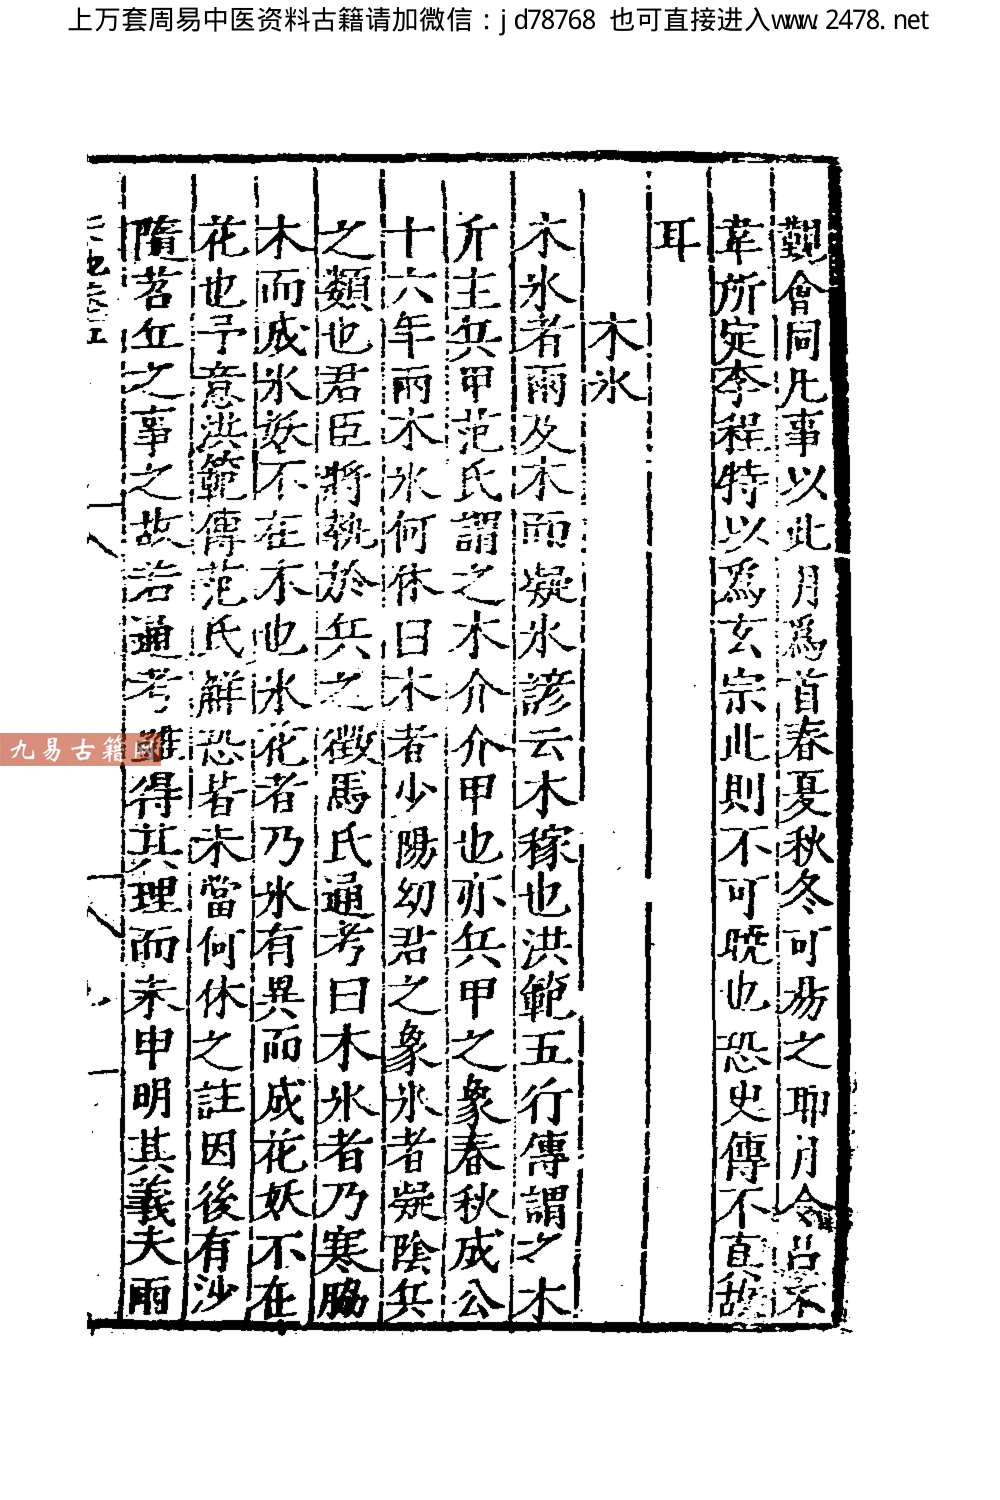 上万套周易中医资料古籍请加微信：jd78768 也可直接进入www.2478.net
覲會同凡事以此月爲首春夏秋冬可易之耶月令吕不
韋所定李程特以爲玄宗此則不可曉也恐史傳不真故
耳
木氷
木氷者雨及木而凝氷諺云木稼也洪範五行傳謂之木
介主兵甲范氏謂之木介介甲也亦兵甲之象春秋成公
十六年雨木氷何休曰木者少陽幼君之象氷者凝陰兵
之類也君臣將執於兵之徵馬氏通考曰木氷者乃寒脇
木而成氷妖不在木也氷花者乃氷有異而成花妖不在
花也予意洪範傳范氏解恐若未當何休之註因後有沙
隨苕丘之事之故若通考雖得其理而未申明其義夫雨
九易古籍网